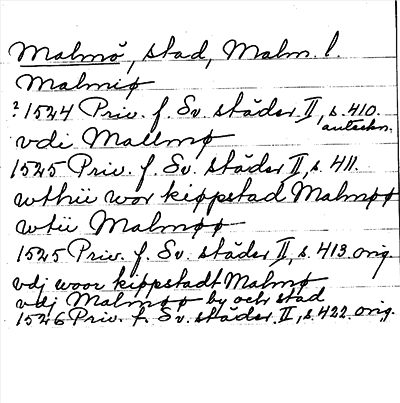 Malmö, stad, Malm. l.
Malmiø
? 1524 Priv. f. Sv. städer II, s. 410.
avskr.
vdi Mallmø
1525 Priv. f. Sv. städer II, s. 411.
wthii wor kippstad Malmøø
wtii Malmøø
1525 Priv. f. Sv. städer II, s. 413 orig.
vdj woor kippstadt Malmø
vdj Malmøø by och stad
1526 Priv. f. Sv. städer II, s. 422 orig.